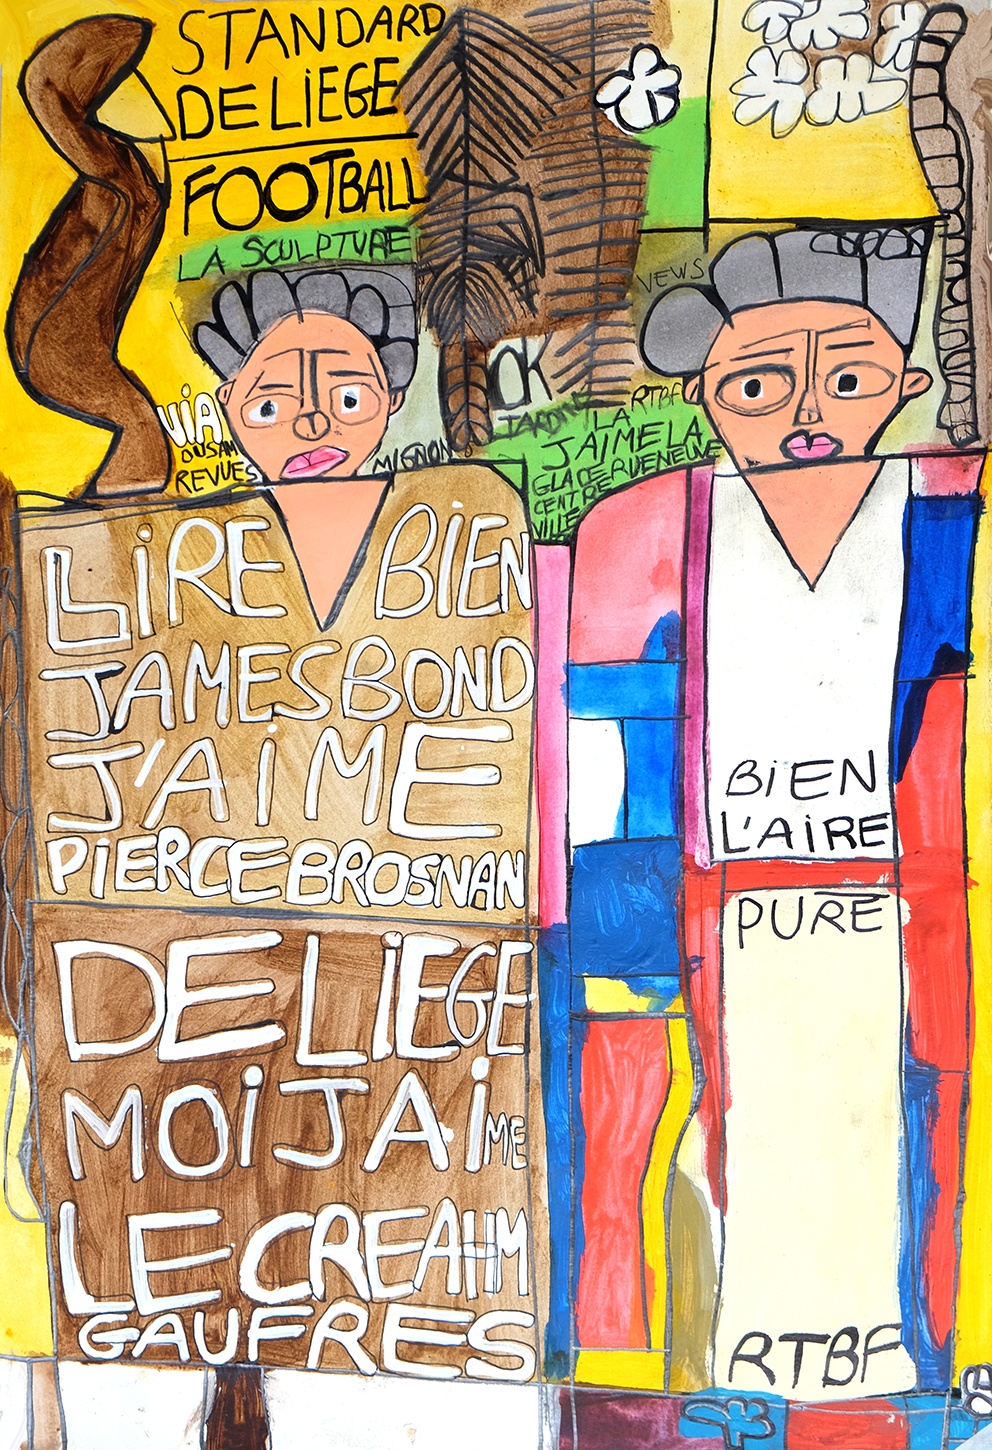 STANDARD
DE LIEGE
FOOTBALL
LA SCULPTURE
VEWS
OK
VIA
OUSAM
REVUES
MIGNON
JARDIN
LA RTBF
J'AIME LA
GLACE RUE NEUVE
CENTRE
VILLE
LIRE BIEN
JAMES BOND
J'AIME
PIERCE BROSNAN
DE LIEGE
MOI J AiME
LE CREAHM
GAUFRES
BIEN
L'AIRE
PURE
RTBF